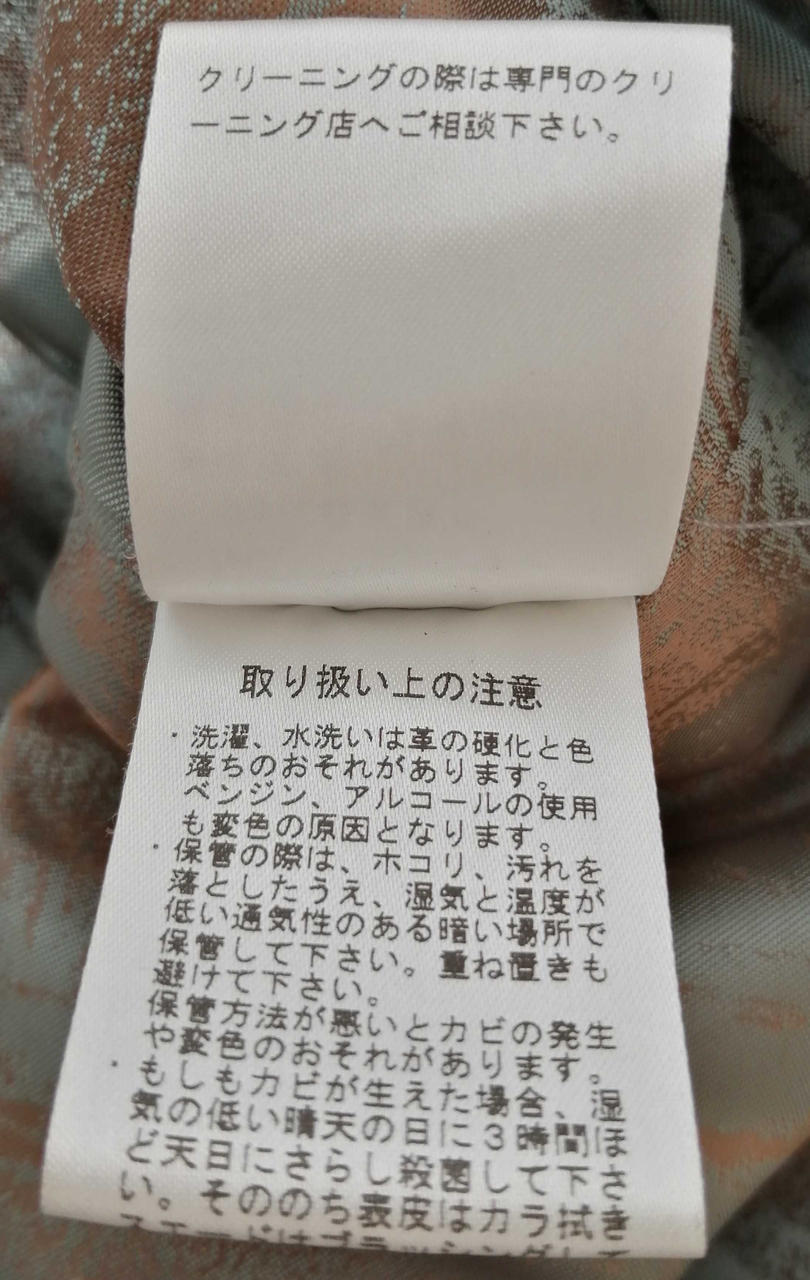 クリーニングの際は専門のクリ
ーニング店へご相談下さい。
取り扱い上の注意
・洗濯、水洗いは革の硬化と色
落ちのおそれがあります。
ベンジン、アルコールの使用
も変色の原因となります。
・保管の際は、ホコリ、汚れを
落としたうえ、湿気と温度が
低い通気性のある暗い場所で
保管して下さい。重ね置きも
避けて下さい。
保管方法が悪いとカビの発生
や変色のおそれがあります。
・もしもカビが生えた場合、湿
気の低い晴天の日に3時間ほ
ど天日にさらし殺菌して下さ
い。そののち表皮はカラ拭き
スエードはブラッシングして